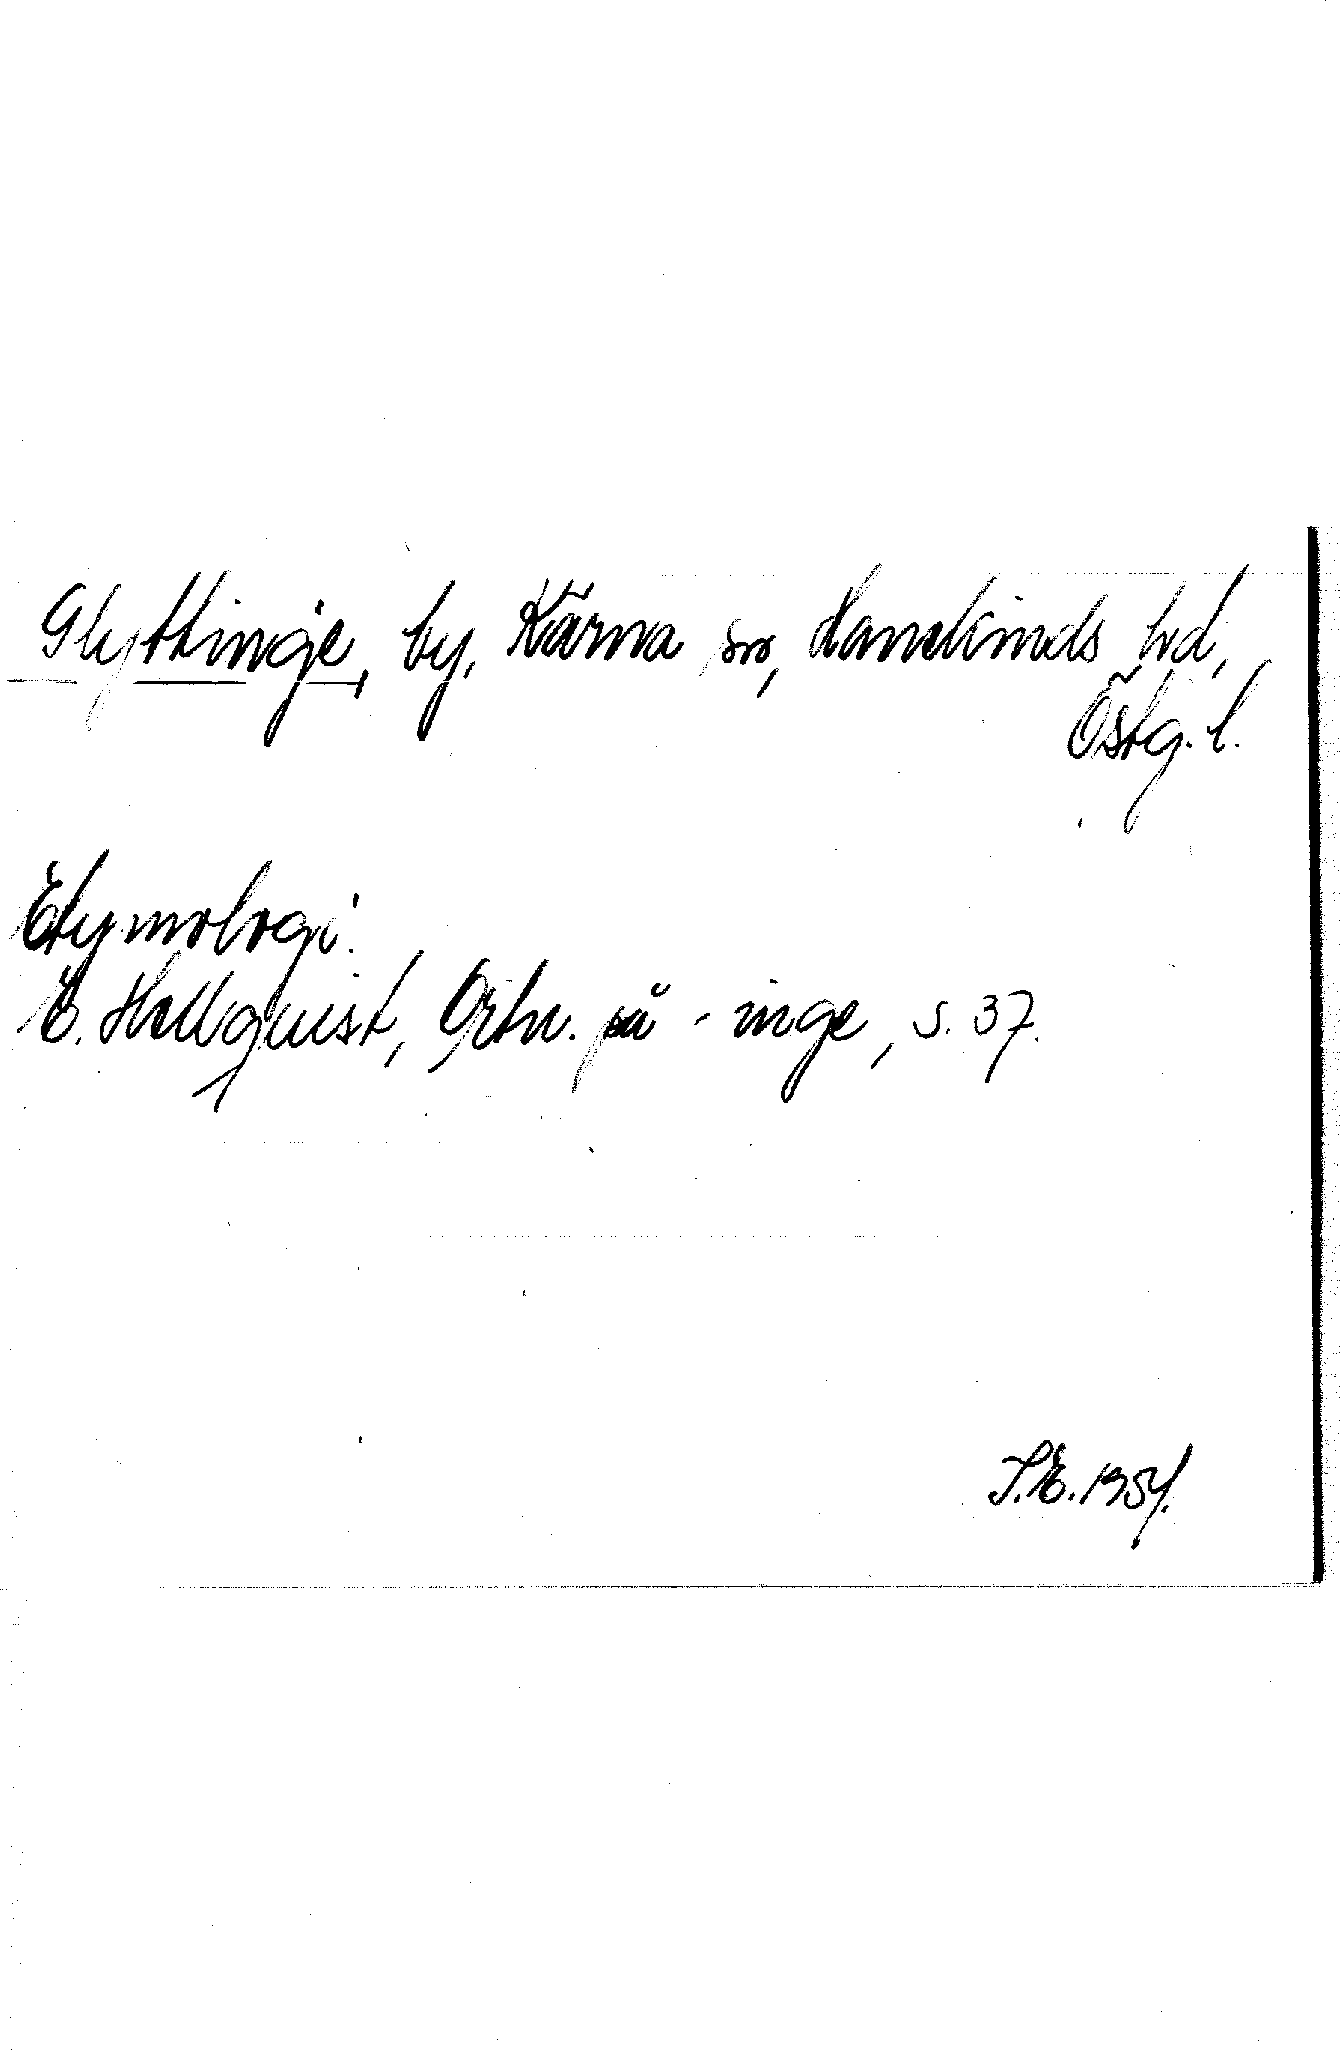 Glyttinge, by, Kärna sn, Hanekinds hd,
Östg. l.
Etymologi.
E. Hellquist, Ortn. på -inge, s. 37.
S.E. 1954.